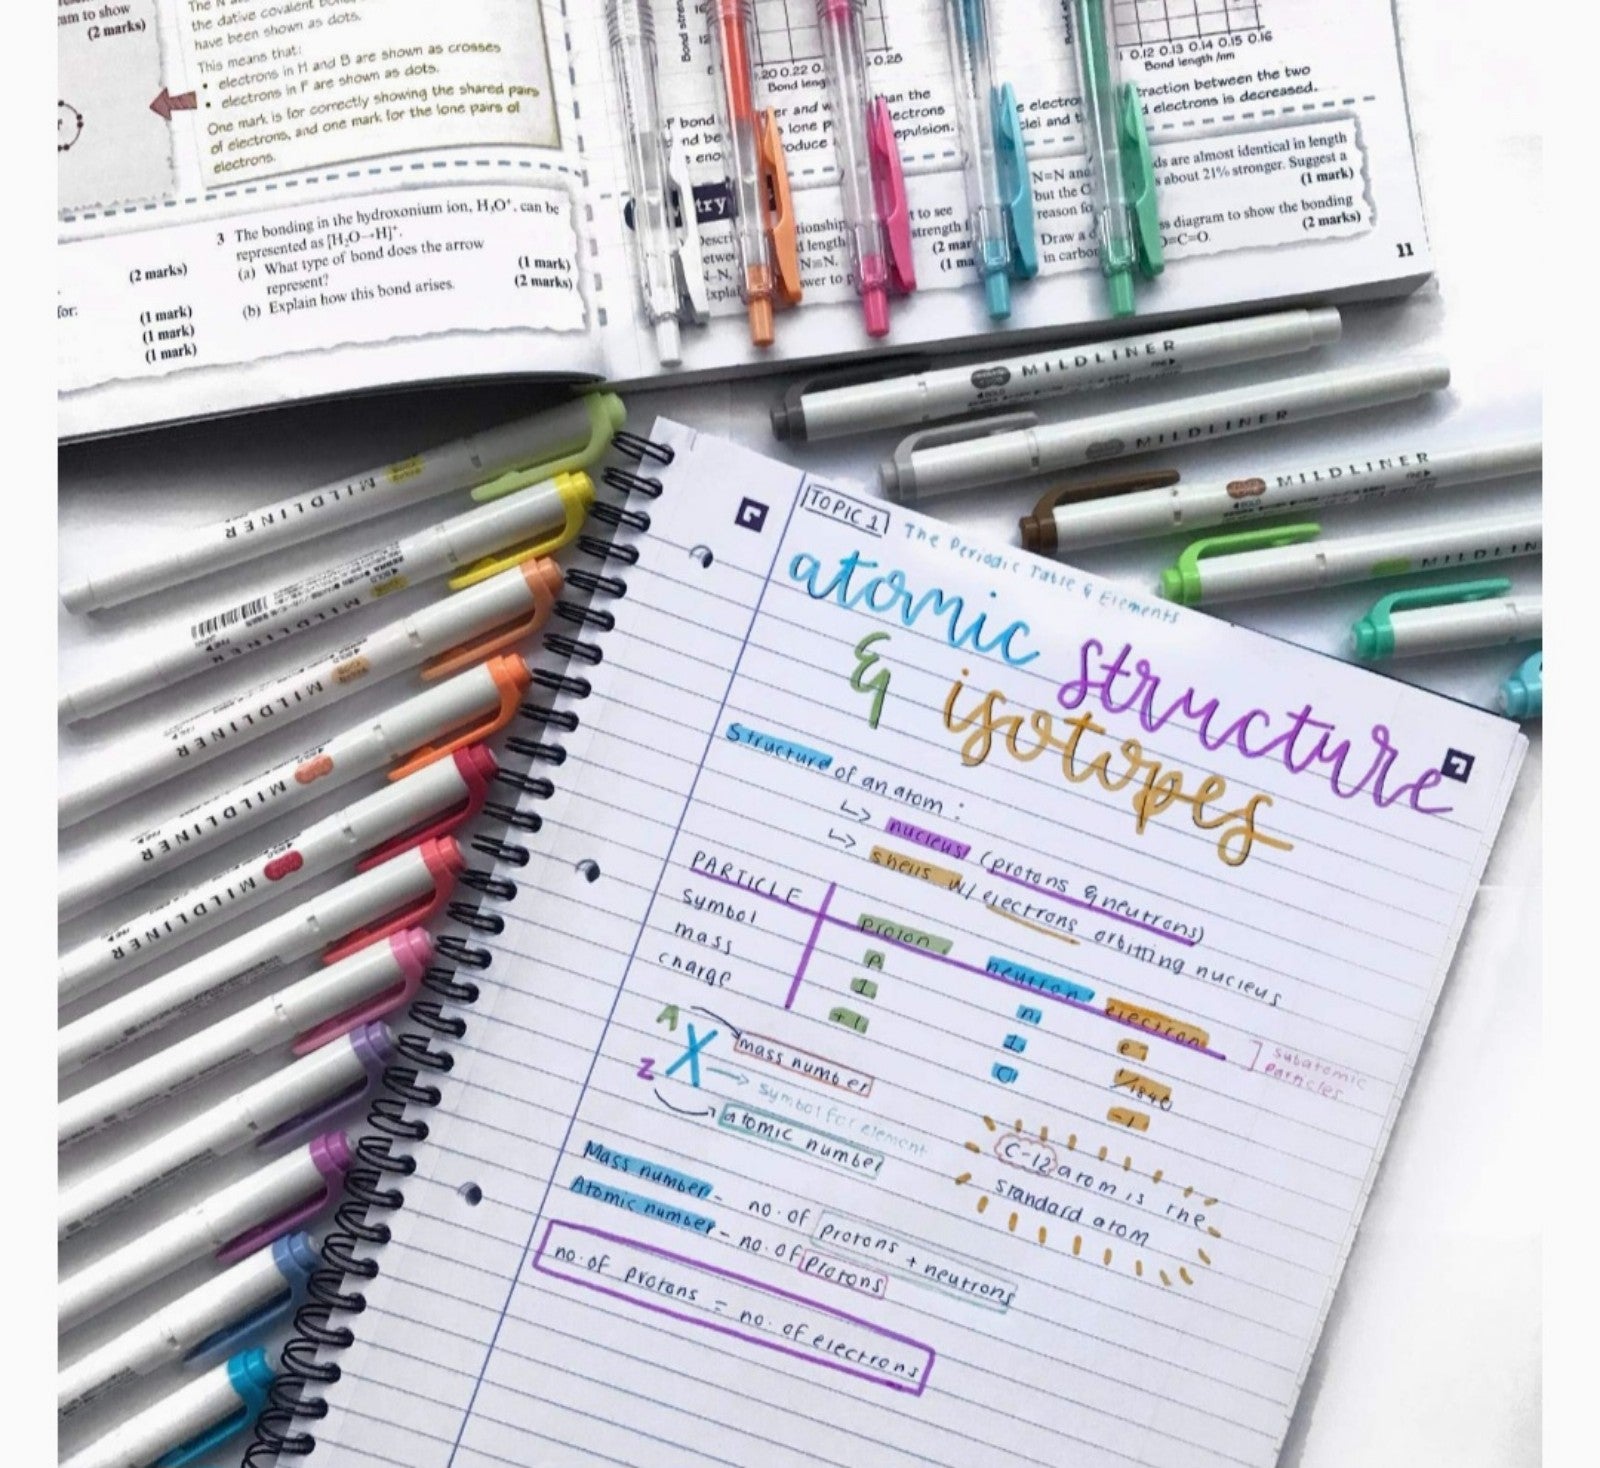 am to show
(2 marks)
the dative covalent
have been shown as dots.
This means that:
• electrons in H and B are shown as crosses
• electrons in F are shown as dots.
One mark is for correctly showing the shared pairs
of electrons, and one mark for the lone pairs of
electrons.
3 The bonding in the hydroxonium ion, H₃O⁺, can be
represented as [H₂O→H]⁺.
(a) What type of bond does the arrow
represent?
(1 mark)
(b) Explain how this bond arises.
(2 marks)
(2 marks)
for:
(1 mark)
(1 mark)
(1 mark)
0.20 0.22
0.28
Bond leng
0.12 0.13 0.14 0.15 0.16
Bond length /nm
bond
er and w
than the
e electro
traction between the two
nd be
lone p
lectrons
clei and t
d electrons is decreased.
eno
oduce
epulsion.
try
N=N and
ds are almost identical in length
but the C
s about 21% stronger. Suggest a
reason fo
(1 mark)
Descri
tionship
t to see
d length
strength
N≡N.
(2 mar
Draw a d
ss diagram to show the bonding
in carbon
O=C=O.
(2 marks)
Explai
wer to p
(1 ma
11
MILDLINER
MILDLINER
MILDLINER
MILDLIN
MILDLINER
MILDLINER
MILDLINER
MILDLINER
MILDLINER
TOPIC 1 The Periodic Table & Elements
atomic structure
& isotopes
Structure of an atom:
↳ nucleus (protons & neutrons)
↳ shells w/ electrons orbitting nucleus
PARTICLE proton neutron electron
symbol p n e⁻
mass 1 1 1/1840
charge +1 0 -1
subatomic
particles
A mass number
X symbol for element
Z atomic number
C-12 atom is the
standard atom
Mass number - no. of protons + neutrons
Atomic number - no. of protons
no. of protons = no. of electrons